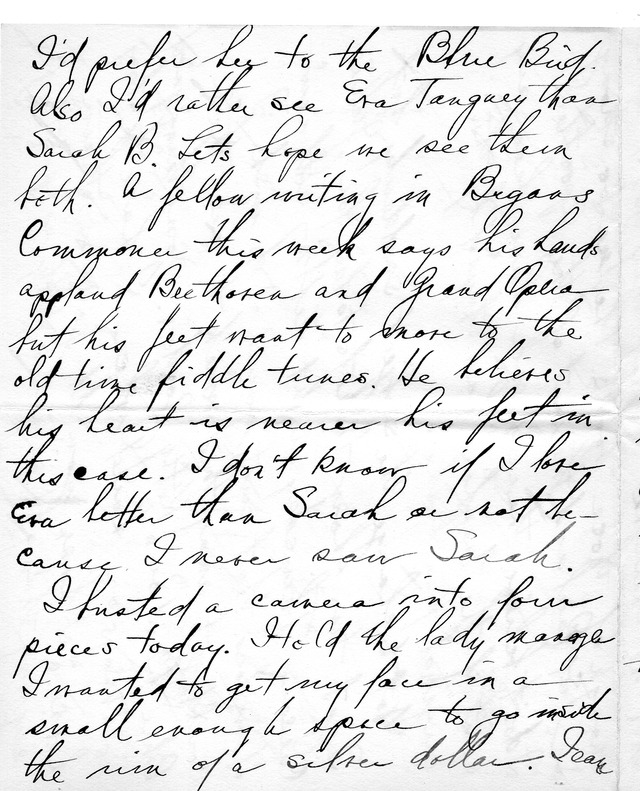 I'd prefer her to the Blue Bird.
Also I'd rather see Eva Tanguey than
Sarah B. Lets hope we see them
both. A fellow writing in Brgans
Commoner this week says his hands
appland Beethoven and Grand Opera
but his feet want to move to the
old time fiddle tunes. He believes
his heart is nearer his feet in
this case. I don't know if I love
Eva better than Sarah or not be-
cause I never saw Sarah.
I busted a camera into four
pieces today. Hold the lady manage
I wanted to get my face in a
small enough space to go inside
the rim of a silver dollar.